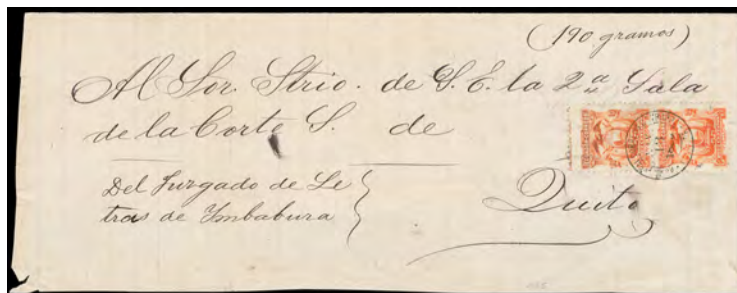 (190 gramos)
Al Sor. Strio. de S. E. la 2ª Sala
de la Corte S. de
Del Juzgado de Le
tras de Imbabura
Quito